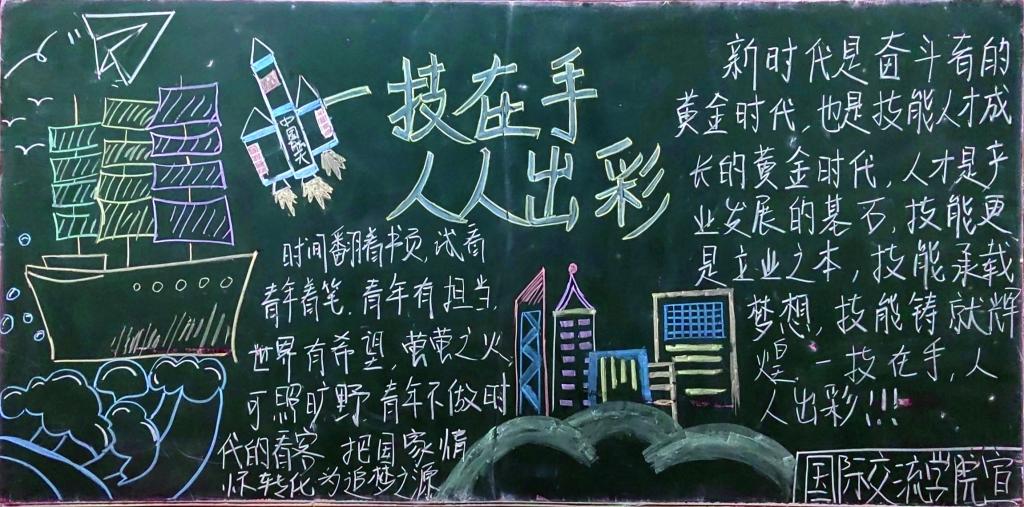 技在手
人人出彩
中国航天
时间翻着书页,试看
青年着笔.青年有担当,
世界有希望,萤萤之火,
可照旷野.青年不做时
代的看客 把国家情
怀转化为追梦之源
新时代是奋斗着的
黄金时代,也是技能人才成
长的黄金时代,人才是产
业发展的基石,技能更
是立业之本,技能承载
梦想,技能铸就辉
煌,一技在手,人
人出彩!!!
国际交流学院宣